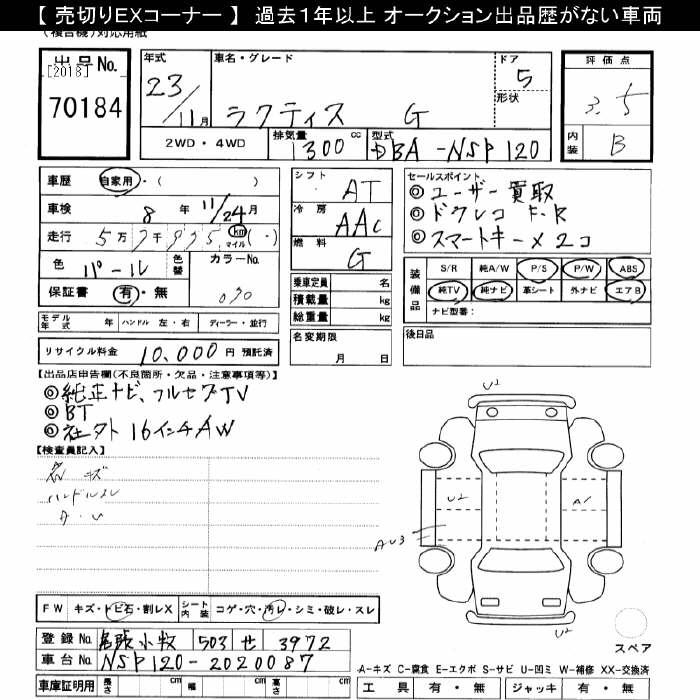 【 売切りEXコーナー 】 過去1年以上 オークション出品歴がない車両
(複合機)対応用紙
出品No.
[2018]
70184
年式 23/11月
車名・グレード ラクティス G
ドア 5
形状
評価点 3.5
内装 B
2WD・4WD
排気量 1300 cc
型式 DBA-NSP120
車歴 自家用・( )
車検 8年 11/24月
走行 5万7千975 km マイル (・)
色 パール 色替
カラーNo. 070
保証書 有・無
シフト AT
冷房 AAC
燃料 G
乗車定員 名
積載量 kg
総重量 kg
名変期限 月 日
セールスポイント
◎ユーザー買取
◎ドラレコ F・R
◎スマートキー×2コ
装備品
S/R 純A/W P/S P/W ABS
純TV 純ナビ 革シート 外ナビ エアB
ナビ型番:
後日品
モデル年式 年 ハンドル 左・右 ディーラー・並行
リサイクル料金 10,000円 預託済
【出品店申告欄(不良箇所・欠品・注意事項等)】
◎純正ナビ、フルセグTV
◎BT
◎社外16インチAW
【検査員記入】
キズ
ハンドルスレ
A・U
U2
U2
A1
AU3
U2
スペア
FW キズ・トビ石・割レX
シート内装 コゲ・穴・汚レ・シミ・破レ・スレ
登録No. 尾張小牧 503 せ 3972
車台No. NSP120-2020087
車庫証明用 長さ cm 幅 cm 高さ cm
A-キズ C-腐食 E-エクボ S-サビ U-凹ミ W-補修 XX-交換済
工具 有・無 ジャッキ 有・無